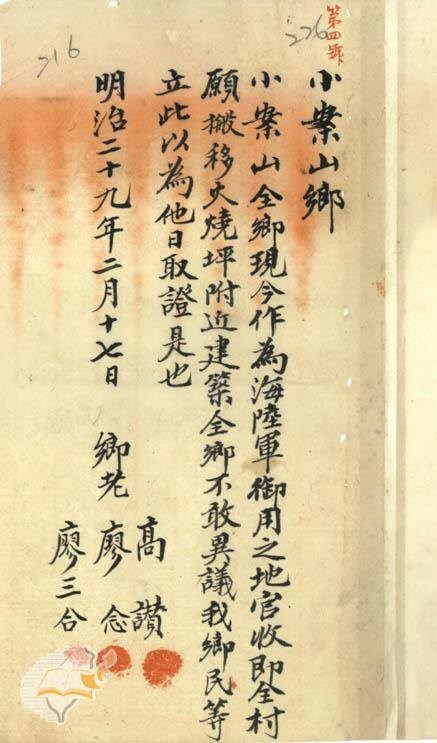 第四號
226
216
小案山鄉
小案山全鄉現今作為海陸軍御用之地官收即全村
願搬移火燒坪附近建築全鄉不敢異議我鄉民等
立此以為他日取證是也
明治二十九年二月十七日
鄉老
高讚
廖念
廖三合